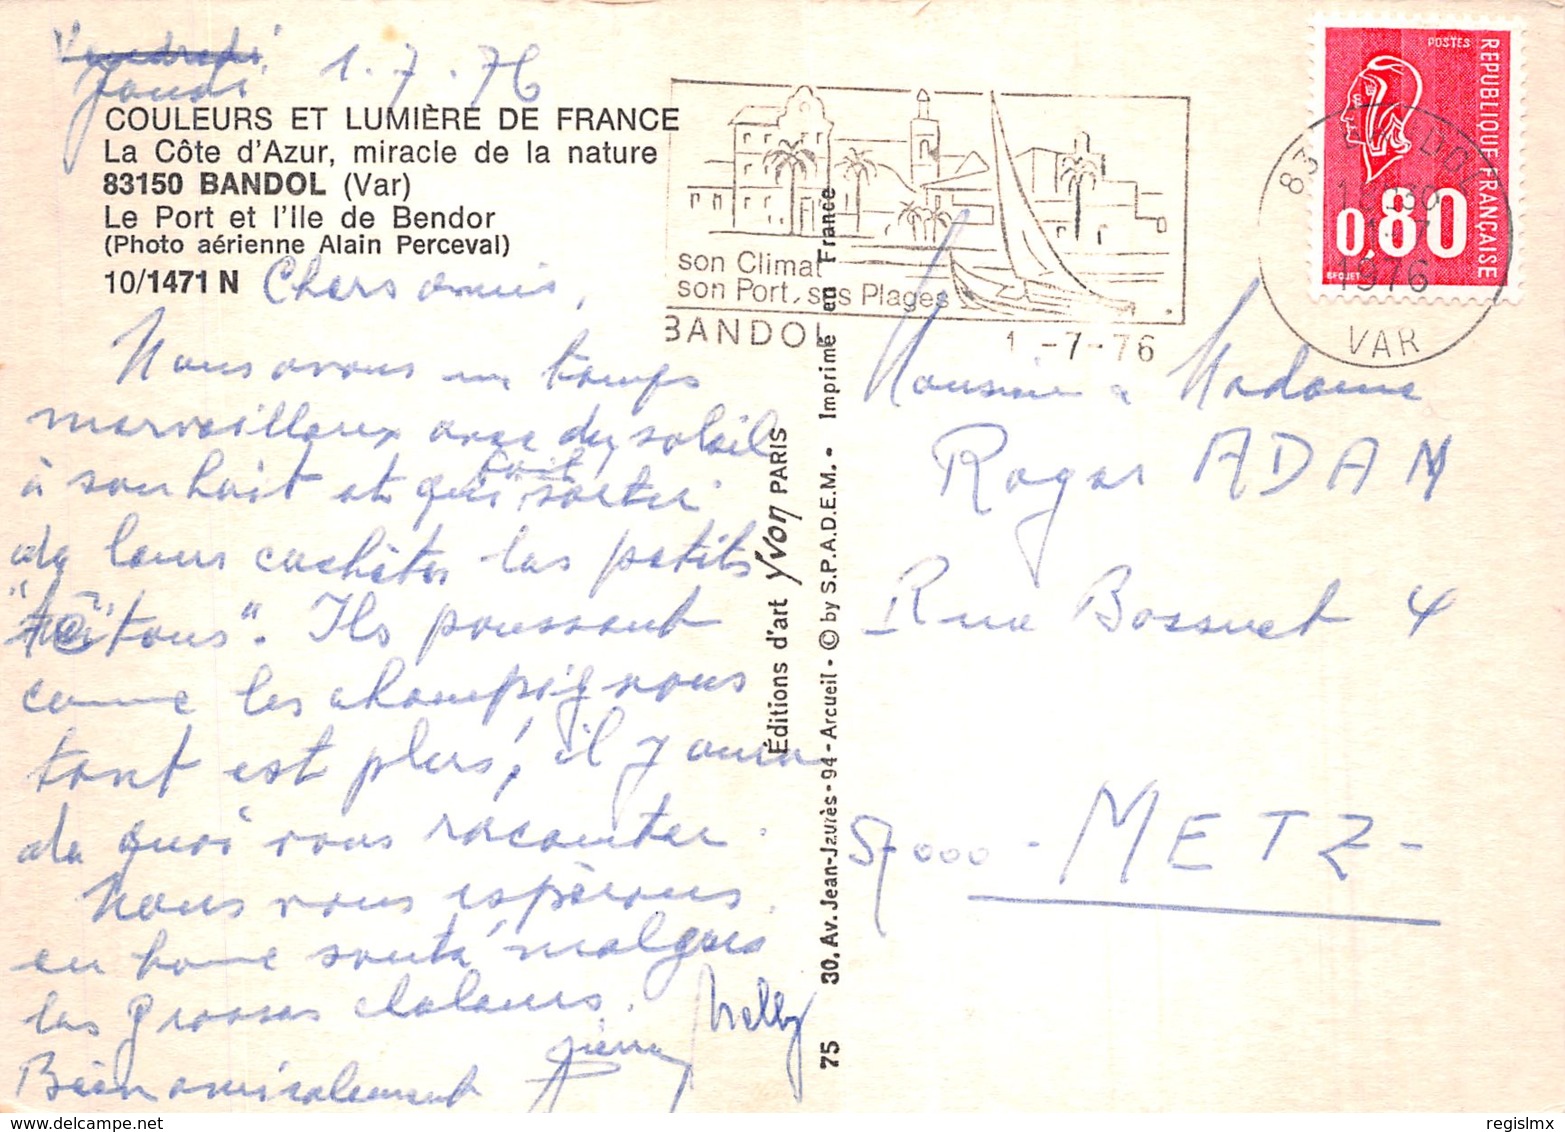 Vendredi
Jeudi 1.7.76
COULEURS ET LUMIÈRE DE FRANCE
La Côte d'Azur, miracle de la nature
83150 BANDOL (Var)
Le Port et l'Ile de Bendor
(Photo aérienne Alain Perceval)
10/1471 N
Chers amis,
Nous avons un temps
merveilleux avec du soleil
à souhait et qui fait sortir
de leurs cachètes les petits
"tétons". Ils poussent
comme les champignons
tant est plus, il y aura
de quoi vous raconter.
Nous vous espérons
en bonne santé malgrés
les grosses chaleurs.
Bien amicalement
Pierre Nelly
son Climat
son Port, ses Plages
BANDOL
1-7-76
Éditions d'art Yvon PARIS
75 30, Av. Jean-Jaurès - 94 - Arcueil - © by S.P.A.D.E.M. - Imprimé en France
POSTES
REPUBLIQUE FRANÇAISE
0,80
83
1-7
1976
VAR
Monsieur & Madame
Roger ADAM
Rue Bossuet 4
57000 - METZ -
regislmx